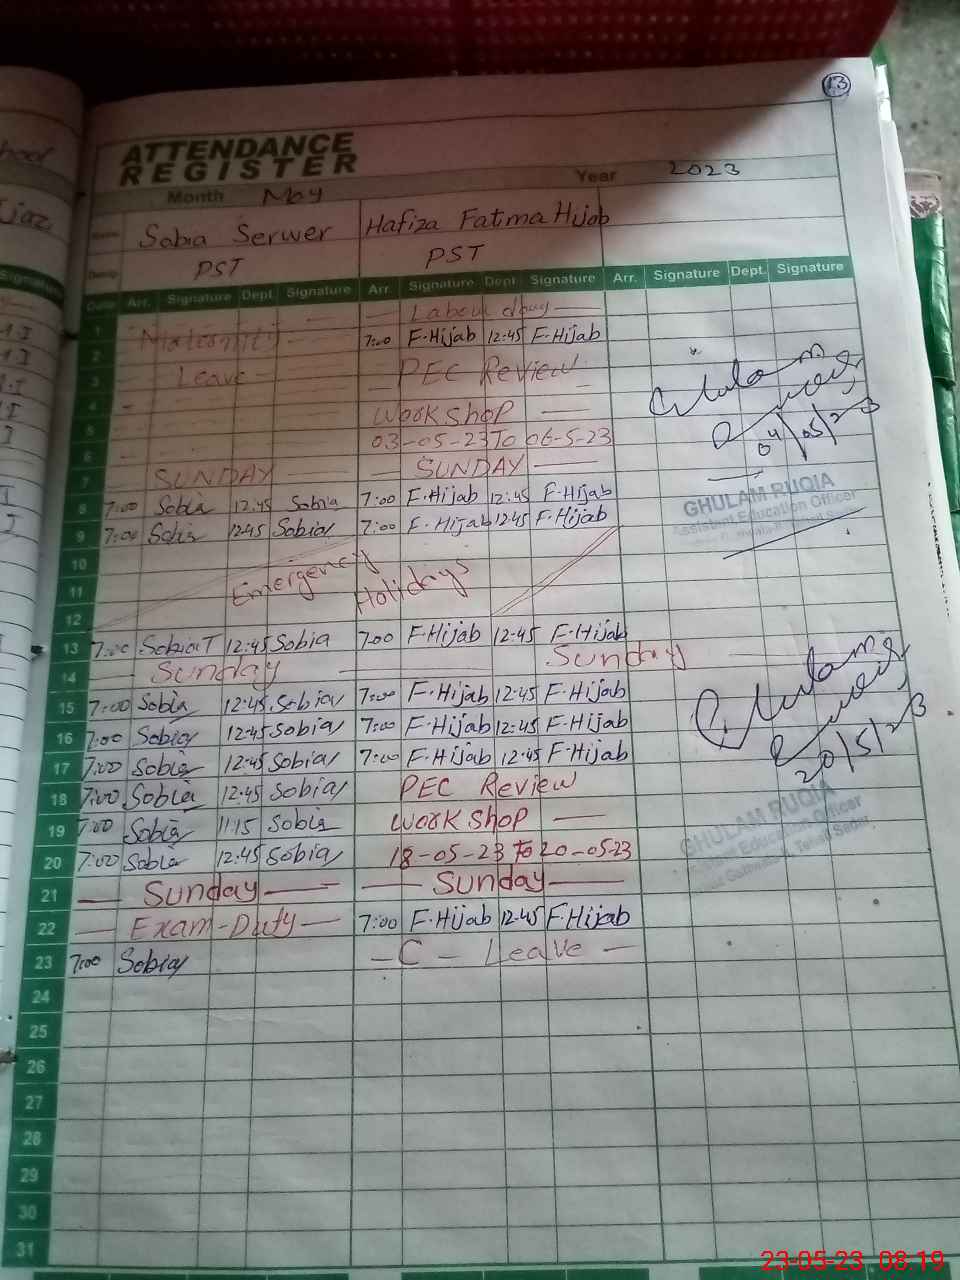 13
ATTENDANCE
REGISTER
Month May Year 2023
Name Sobia Serwer Hafiza Fatma Hijab
Desig. PST PST
Date Arr. Signature Dept Signature Arr. Signature Dept Signature Arr. Signature Dept. Signature
1 — Labour day —
Maternity 7:00 F.Hijab 12:45 F.Hijab
2
3 Leave PEC Review
4 Work Shop —
5 03-05-23 To 06-5-23
6
7 SUNDAY — SUNDAY —
8 7:00 Sobia 12:45 Sobia 7:00 F.Hijab 12:45 F.Hijab
9 7:00 Sobia 12:45 Sobia 7:00 F.Hijab 12:45 F.Hijab
10
11 Emergency Holidays
12
13 7:00 Sobia T 12:45 Sobia 7:00 F.Hijab 12:45 F.Hijab
14 Sunday — Sunday
15 7:00 Sobia 12:45 Sobia 7:00 F.Hijab 12:45 F.Hijab
16 7:00 Sobia 12:45 Sobia 7:00 F.Hijab 12:45 F.Hijab
17 7:00 Sobia 12:45 Sobia 7:00 F.Hijab 12:45 F.Hijab
18 7:00 Sobia 12:45 Sobia PEC Review
19 7:00 Sobia 11:15 Sobia Work Shop —
20 7:00 Sobia 12:45 Sobia 18-05-23 To 20-05-23
21 — Sunday — — Sunday —
22 — Exam-Duty — 7:00 F.Hijab 12:45 F.Hijab
23 7:00 Sobia — C - Leave —
24
25
26
27
28
29
30
31
Ghulam
Ruqia
04/05/23
GHULAM RUQIA
Assistant Education Officer
Ghulam
Ruqia
20/5/23
GHULAM RUQIA
Assistant Education Officer
hool
Ijaz
Signature
23-05-23 08:19